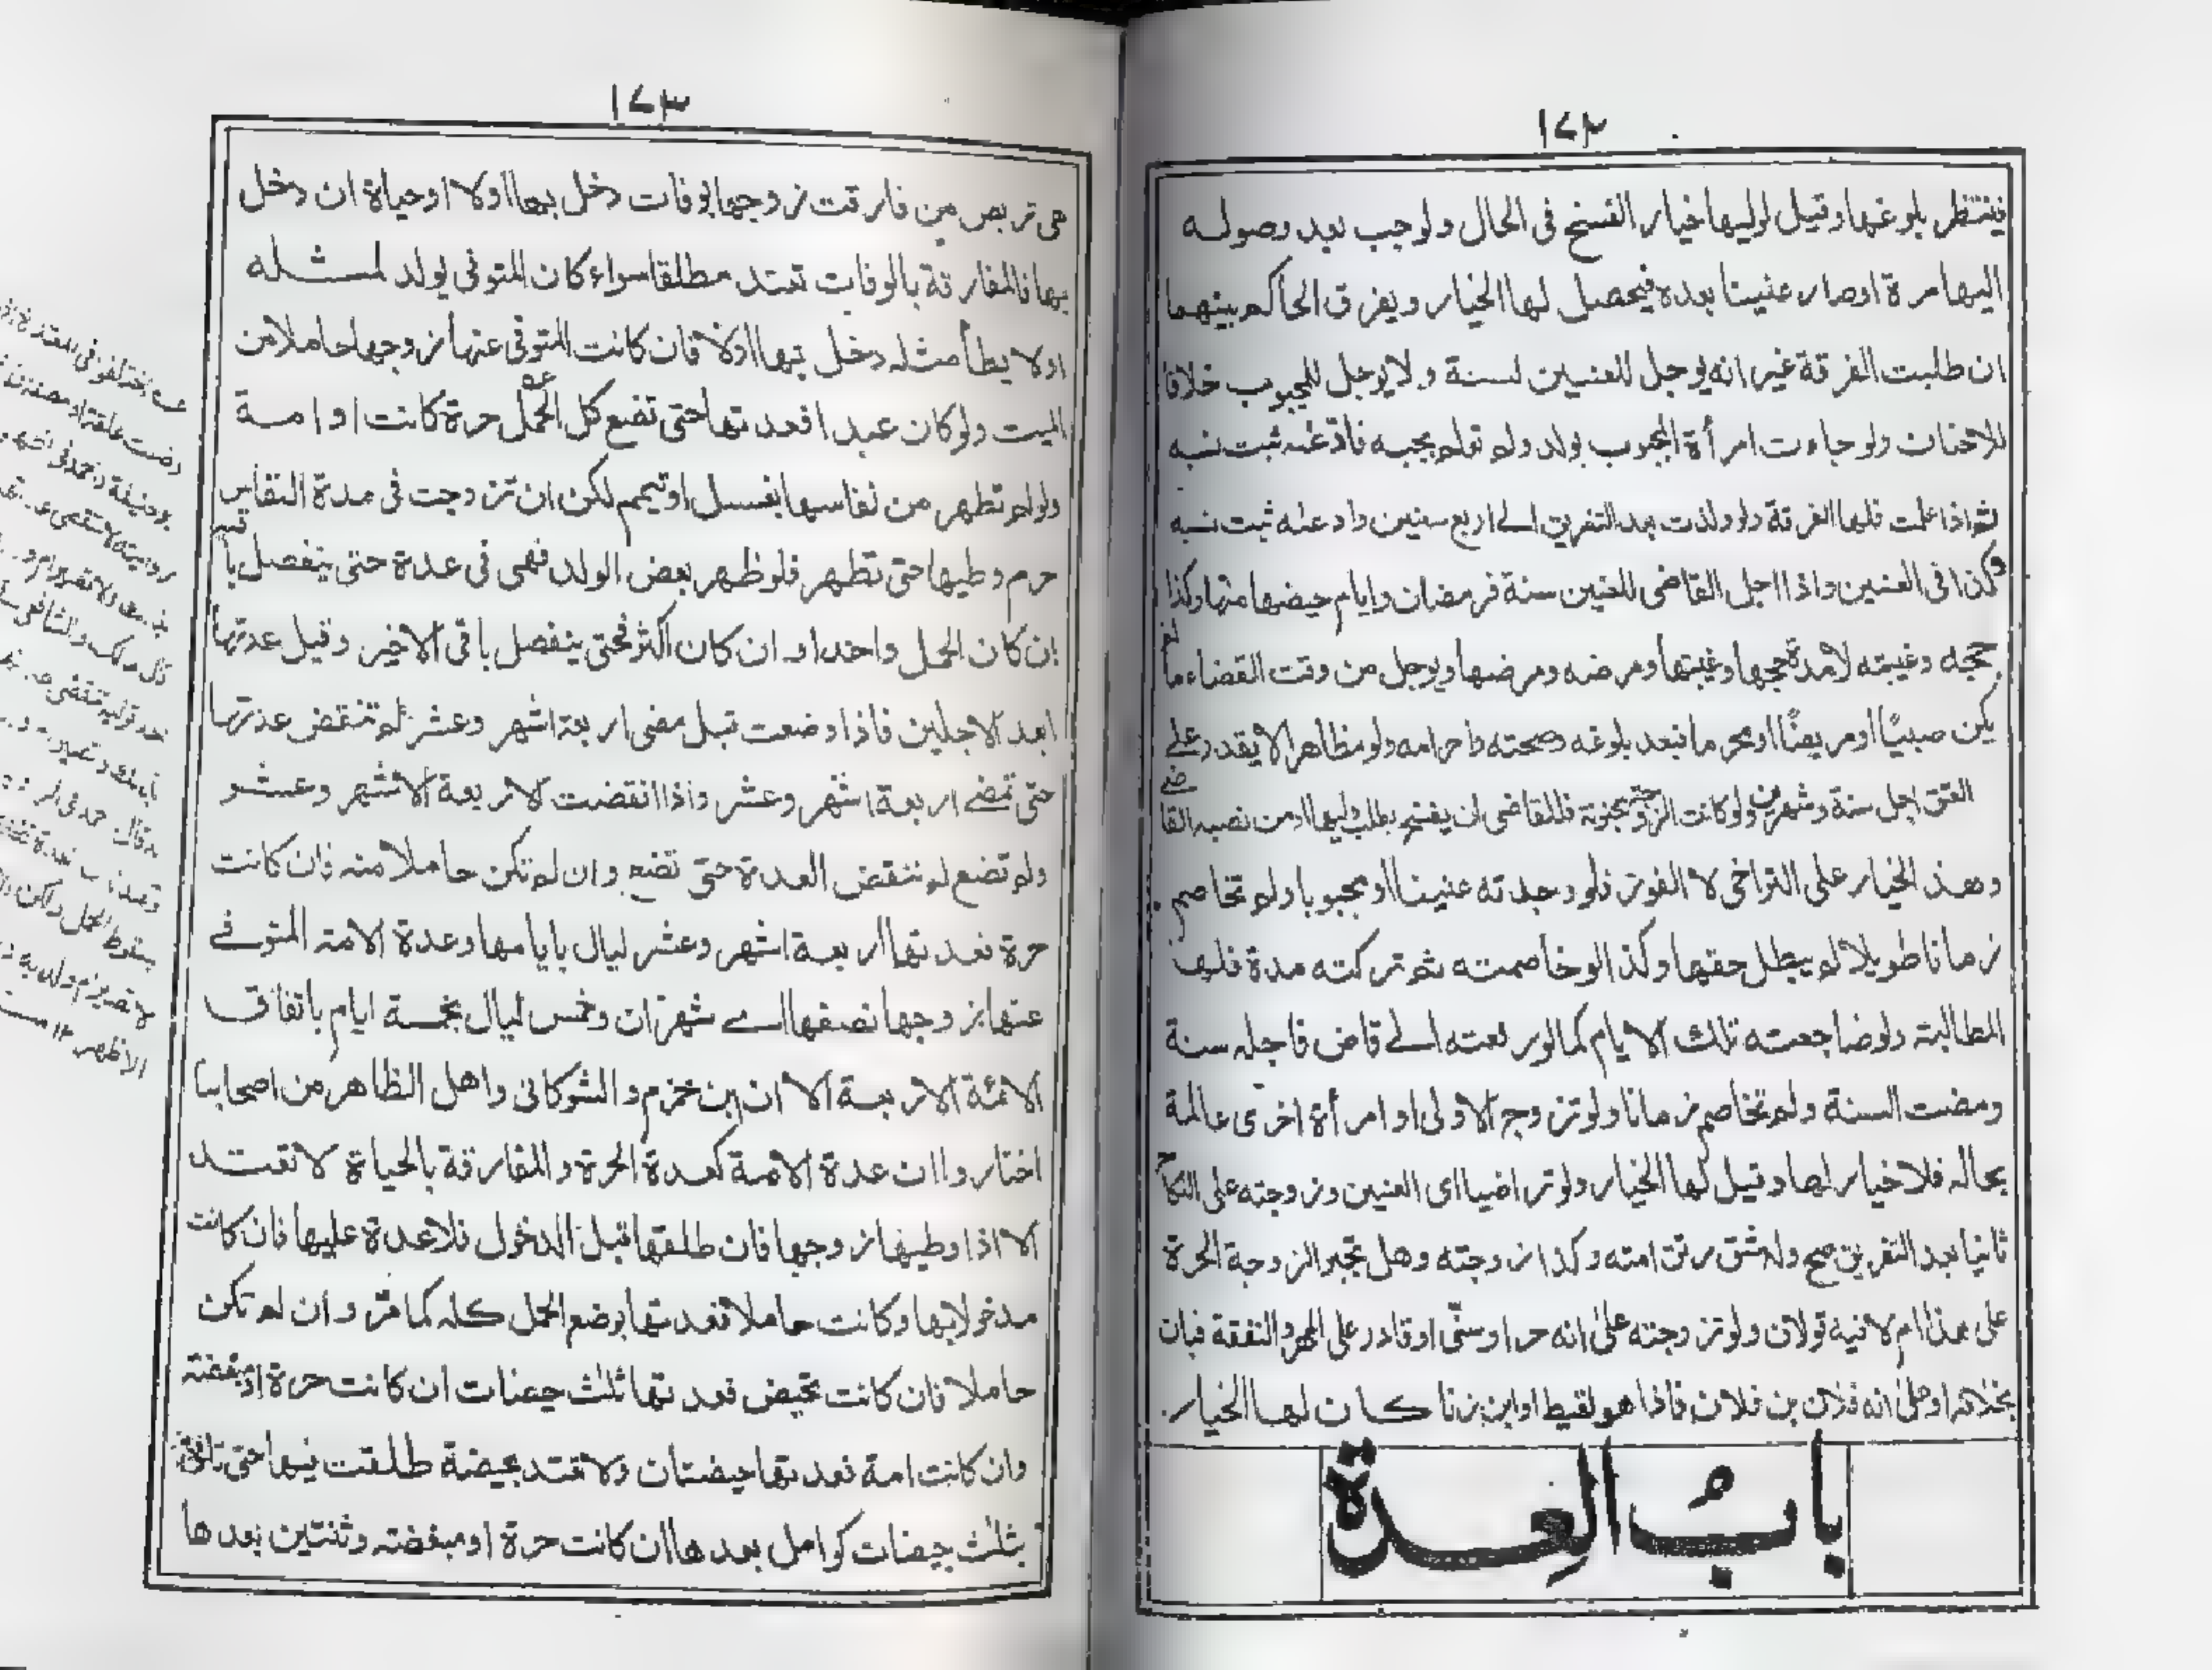 ١٧٢
فينتظر بلوغها وقيل لوليها خيار الفسخ فى الحال ولو جب بعد وصوله
اليها مرة اوصار عنينا بعده فيحصل لها الخيار ويفرق الحاكم بينهما
ان طلبت الفرقة غير انه يوجل للعنين لسنة ولا يوجل للمجبوب خلافا
للاحناف ولو جاءت امرأة المجبوب بولد ولم تعلم بجبه فادعته ثبت نسبه
ثم اذا علمت فلها الفرقة ولو ولدت بعد التفريق الے اربع سنين وادعته ثبت نسبه
وكذا فى العنين واذا اجل القاضى للعنين سنة فرمضان وايام حيضها منها وكذا
حجه وغيبته لا مدة حجها وغيبتها ومرضه ومرضها ويوجل من وقت القضاء ما لم
يكن صبيًا او مريضًا او محرما فبعد بلوغه وصحته واحرامه ولو مظاهرا لا يقدر على
العتق اجل سنة وشهرين ولو كانت الزوجة مجنونة فللقاضى ان يفسخ بطلب وليها او من نصبه القاضى
وهذ الخيار على التراخى لا الفور فلو وجدته عنينا او مجبوبا ولم تخاصم
زمانا طويلا لم يبطل حقها وكذا لو خاصمته ثم تركته مدة فلها
المطالبة ولو ضاجعته تلك الايام كما لو رفعته الے قاض فاجله سنة
ومضت السنة ولم تخاصم زمانا ولو تزوج الاولى او امرأة اخرى عالمة
بحاله فلا خيار لها وقيل لها الخيار ولو تراضيا اى العنين وزوجته على النكاح
ثانيا بعد التفريق صح وله شق رتق امته وكذا زوجته وهل تجبر الزوجة الحرة
على هذا ام لا فيه قولان ولو تزوجته على انه حر اوسنّى او قادر على المهر والنفقة فبان
بخلافه او على انه فلان بن فلان فاذا هو لقيط او ابن زنا كان لها الخيار.
بابُ العِدة
١٧٣
هى تربص من فارقت زوجها بوفات دخل بها اولا او حياة ان دخل
بها فالمفارقة بالوفات تعتد مطلقا سواء كان المتوفى يولد لمثله
اولا يطأ مثله دخل بها اولا فان كانت المتوفى عنها زوجها حاملا من
الميت ولو كان عبدا فعدتها حتى تضع كل الحمل حرة كانت او امة
ولو لم تطهر من نفاسها بغسل او تيمم لكن ان تزوجت فى مدة النفاس
حرم وطيها حتى تطهر فلو ظهر بعض الولد فهى فى عدة حتى ينفصل باقيه
ان كان الحمل واحدا و ان كان اكثر فحتى ينفصل باقى الاخير وقيل عدتها
ابعد الاجلين فاذا وضعت قبل مضى اربعة اشهر وعشر لم تنقض عدتها
حتى تمضى اربعة اشهر وعشر واذا انقضت الاربعة الاشهر وعشر
ولم تضع لم تنقض العدة حتى تضع وان لم تكن حاملا منه فان كانت
حرة فعدتها اربعة اشهر وعشر ليال بايامها وعدة الامة المتوفے
عنها زوجها نصفها اے شهران وخمس ليال بخمسة ايام باتفاق
الائمة الاربعة الا ان ابن حزم والشوكانى واهل الظاهر من اصحابنا
اختاروا ان عدة الامة كعدة الحرة والمفارقة بالحياة لا تعتد
الا اذا وطيها زوجها فان طلقها قبل الدخول فلا عدة عليها فان كانت
مدخولا بها وكانت حاملا فعدتها بوضع الحمل كله كما مرّ و ان لم تكن
حاملا فان كانت تحيض فعدتها ثلث حيضات ان كانت حرة او مبعضة
وان كانت امة فعدتها حيضتان ولا تعتد بحيضة طلقت فيها حتى تاتى
بثلث حيضات كوامل بعدها ان كانت حرة او مبعضة وثنتين بعدها
بسقوط الحمل
الاظهر ١٢